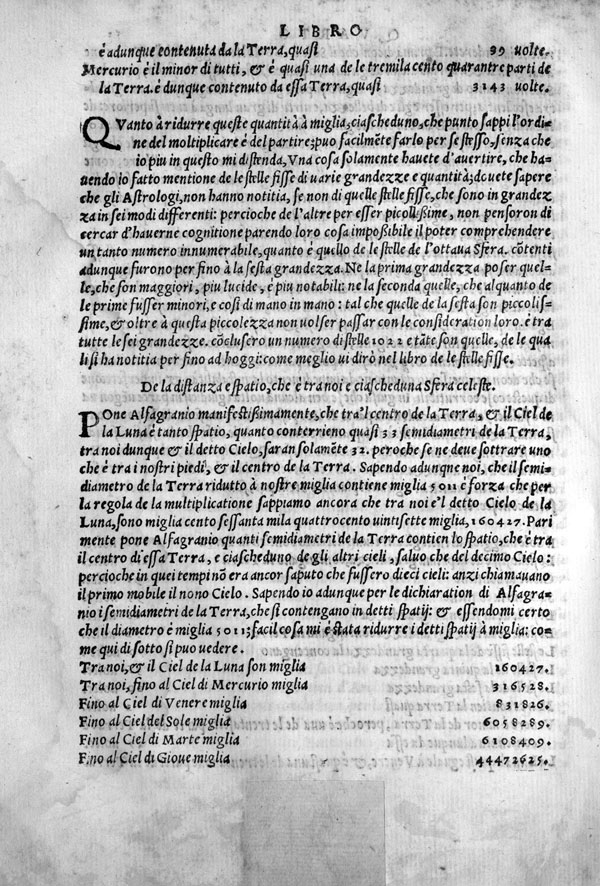 LIBRO
è adunque contenuta da la Terra, quasi 39 volte.
Mercurio è il minor di tutti, & è quasi una de le tremila cento quarantre parti de
la Terra. è dunque contenuto da essa Terra, quasi 3143 volte.
QVanto à ridurre queste quantità à miglia; ciascheduno, che punto sappi l'ordi
ne del moltiplicare è del partire; puo facilmẽte farlo per se stesso, senza che
io piu in questo mi distenda, Vna cosa solamente hauete d'auertire, che ha-
uendo io fatto mentione de le stelle fisse di uarie grandezze e quantità; douete sapere
che gli Astrologi, non hanno notitia, se non di quelle stelle fisse, che sono in grandez
za in sei modi differenti: percioche de l'altre per esser picolissime, non pensoron di
cercar d'hauerne cognitione parendo loro cosa impossibile il poter comprehendere
un tanto numero innumerabile, quanto è quello de le stelle de l'ottaua Sfera. cõtenti
adunque furono per fino à la sesta grandezza. Ne la prima grandezza poser quel-
le, che son maggiori, piu lucide, è piu notabili: ne la seconda quelle, che alquanto de
le prime fusser minori, e così di mano in mano: tal che quelle de la sesta son piccolis-
sime, & oltre à questa piccolezza non uolser passar con le consideration loro. è tra
tutte le sei grandezze. cõclusero un numero di stelle 1022 e tãte son quelle, de le qua
li si ha notitia per fino ad hoggi: come meglio ui dirò nel libro de le stelle fisse.
De la distanza e spatio, che è tra noi e ciascheduna Sfera celeste.
PONE Alfagranio manifestissimamente, che tra'l centro de la Terra, & il Ciel de
la Luna è tanto spatio, quanto conterrieno quasi 33 semidiametri de la Terra,
tra noi dunque & il detto Cielo, saran solamẽte 32. peroche se ne deue sottrare uno
che è tra i nostri piedi, & il centro de la Terra. Sapendo adunque noi, che il semi-
diametro de la Terra ridutto à nostre miglia contiene miglia 5011 è forza che per
la regola de la multiplicatione sappiamo ancora che tra noi e'l detto Cielo de la
Luna, sono miglia cento sessanta mila quattrocento uintisette miglia, 160427. Pari
mente pone Alfagranio quanti semidiametri de la Terra contien lo spatio, che è tra
il centro di essa Terra, e ciascheduno de gli altri cieli, saluo che del decimo Cielo:
percioche in quei tempi nõ era ancor saputo che fussero dieci cieli: anzi chiamauano
il primo mobile il nono Cielo. Sapendo io adunque per le dichiaration di Alfagra-
nio i semidiametri de la Terra, che si contengano in detti spatij: & essendomi certo
che il diametro è miglia 5011; facil cosa mi è stata ridurre i detti spatij à miglia: co-
me qui di sotto si puo uedere.
Tra noi, & il Ciel de la Luna son miglia 160427.
Tra noi, fino al Ciel di Mercurio miglia 316528.
Fino al Ciel di Venere miglia 831826.
Fino al Ciel del Sole miglia 6058289.
Fino al Ciel di Marte miglia 6108409.
Fino al Ciel di Gioue miglia 44472625.